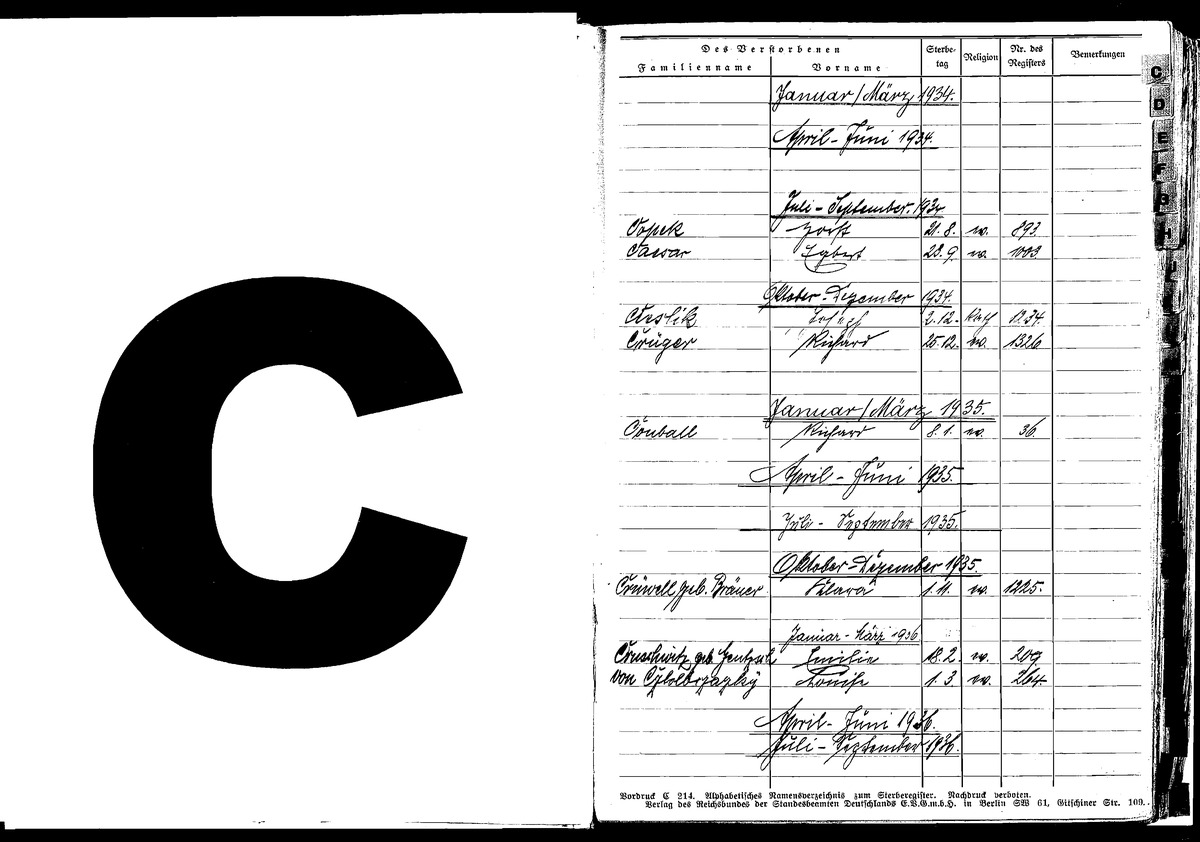 C
Des Verstorbenen
Familienname Vorname Sterbetag Religion Nr. des Registers Bemerkungen
Januar/März 1934.
April - Juni 1934.
Juli - September. 1934
Horst 21. 8. ev. 893
Caesar Egbert 23. 9. ev. 1003
Oktober - Dezember 1934
Cieslik Joseph 2. 12. Kath 1234.
Crüger Richard 25. 12. ev. 1326
Januar/März 1935.
Richard 8. 1. ev. 36.
April - Juni 1935.
Juli - September 1935.
Oktober - Dezember 1935.
Crüwell geb. Bräuer Klara 1. 11. ev. 1225.
Januar - März 1936
geb. Emilie 18. 2. ev. 209
von Louise 1. 3 ev. 264.
April - Juni 1936.
Juli - September 1936.
Vordruck C 214. Alphabetisches Namensverzeichnis zum Sterberegister. Nachdruck verboten.
Verlag des Reichsbundes der Standesbeamten Deutschlands E.V.G.m.b.H. in Berlin SW 61, Gitschiner Str. 109.
C
D
E
F
G
H